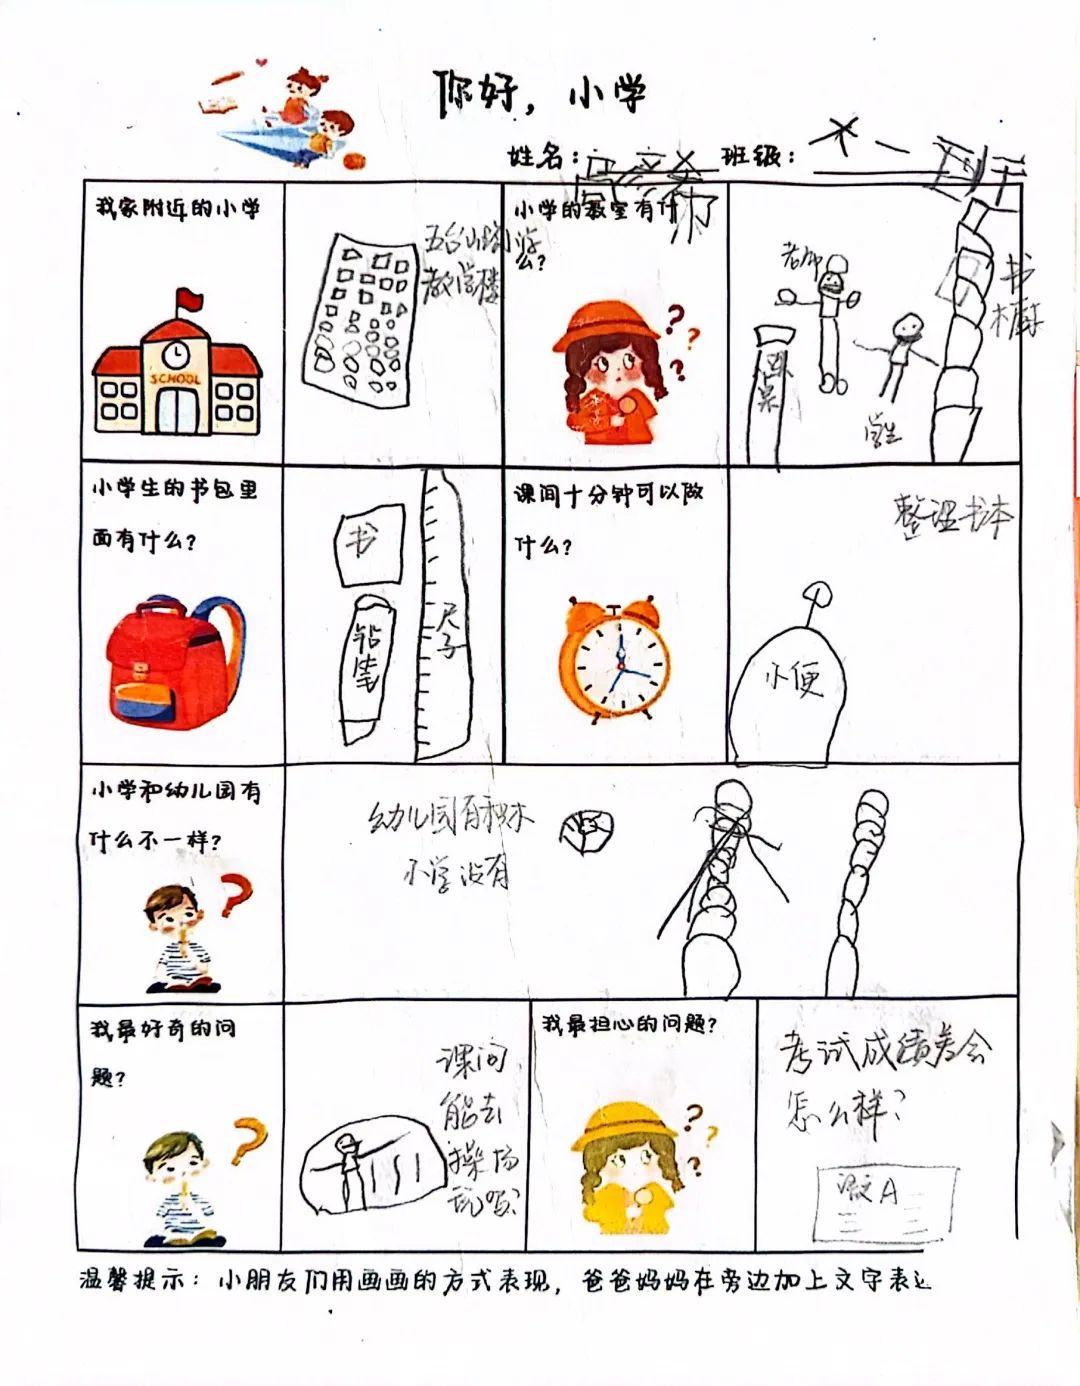 你好，小学
姓名：
班级：
我家附近的小学
SCHOOL
五台山小学
教学楼
小学的教室有什
么？
老师
书
橱
学生
小学生的书包里
面有什么？
书
铅笔
尺子
课间十分钟可以做
什么？
整理书本
小便
小学和幼儿园有
什么不一样？
幼儿园有积木
小学没有
我最好奇的问
题？
课间
能去
操场
玩吗？
我最担心的问题？
考试成绩差会
怎么样？
语文A
温馨提示：小朋友们用画画的方式表现，爸爸妈妈在旁边加上文字表